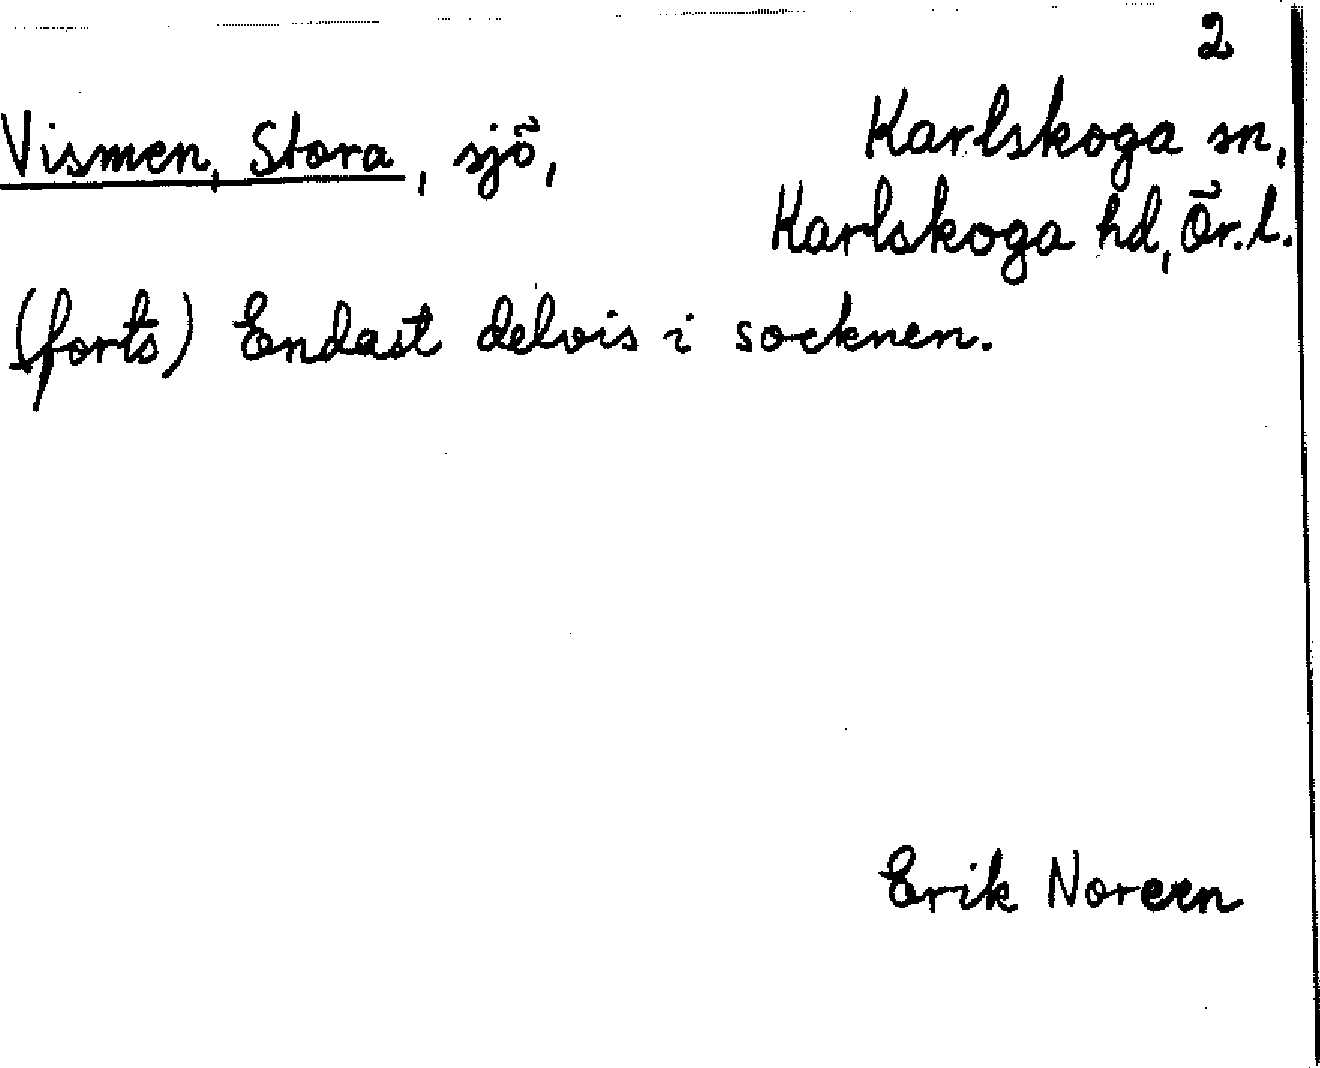 2
Vismen, Stora, sjö,
Karlskoga sn,
Karlskoga hd, Ör. l.
(forts) Endast delvis i socknen.
Erik Noreen